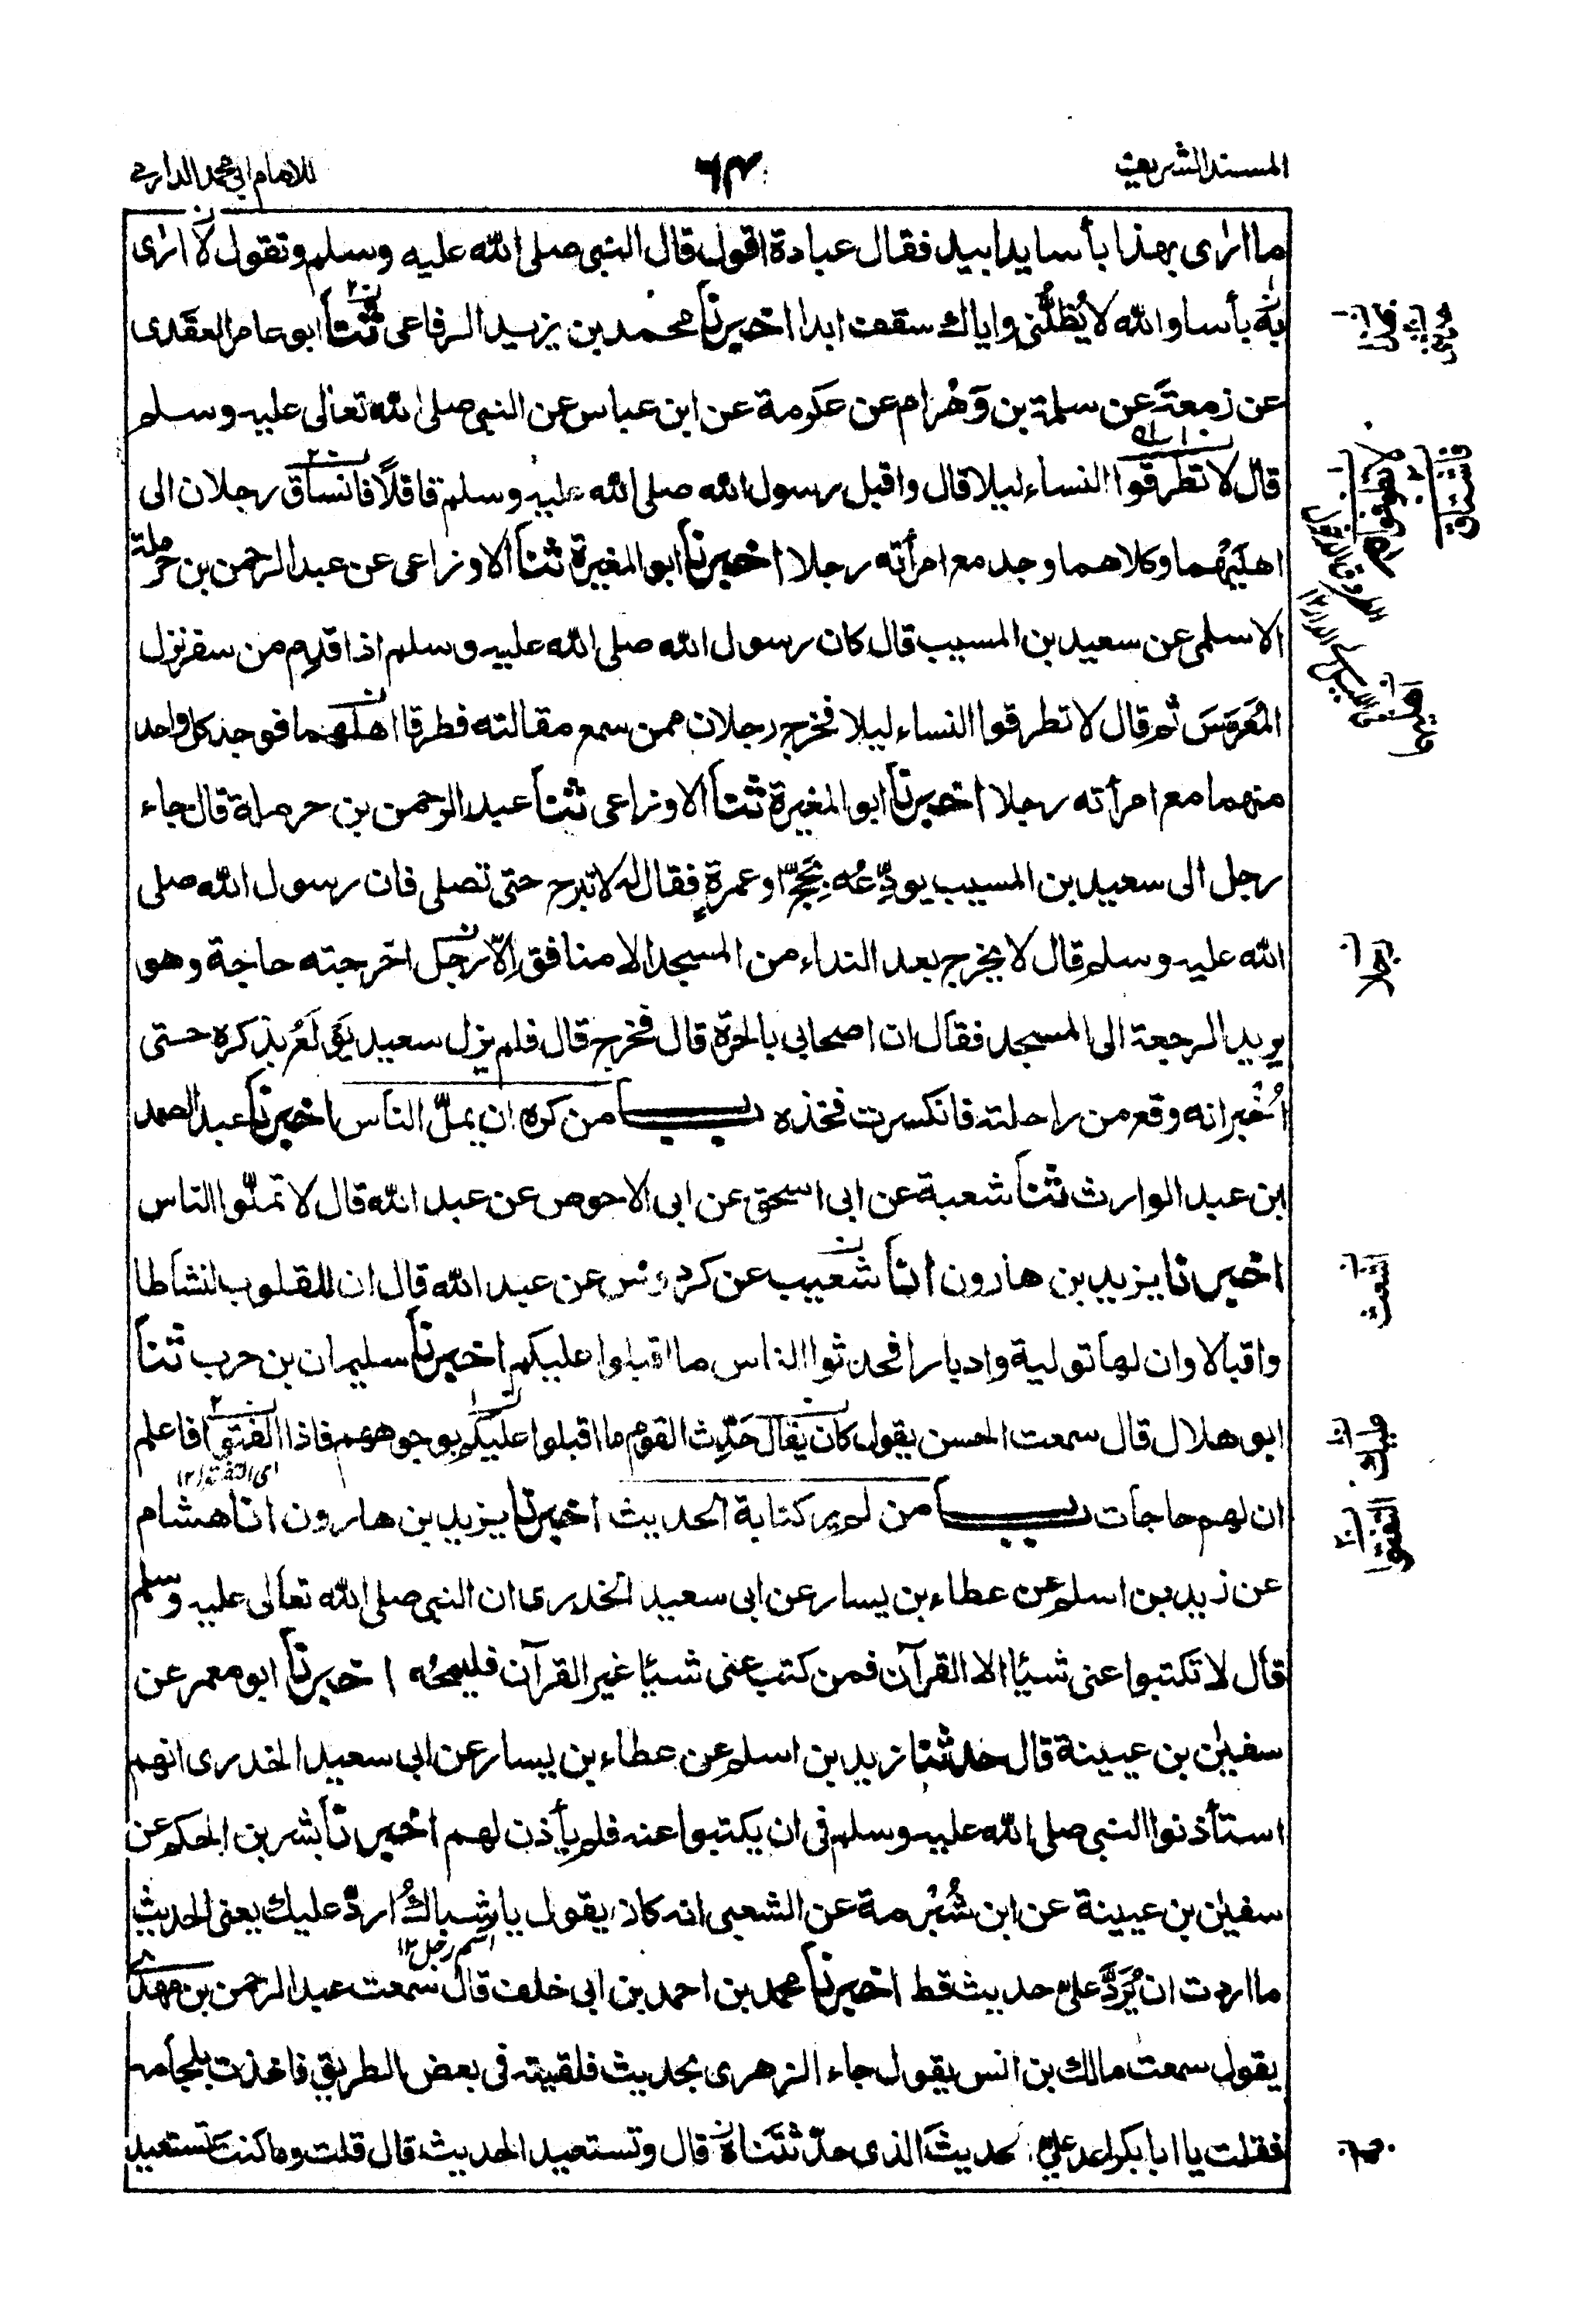 المسند الشريف
٦٤
للامام ابی محمد الدارمی
ما ارٰی بهذا بأسا يدا بيد فقال عبادة اقول قال النبی صلی الله عليه وسلم وتقول لا ارٰی
به بأسا والله لا يُظلُّنی واياك سقف ابدا اخبرنا محمد بن يزيد الرفاعی ثنا ابو عامر العقدی
عن زمعة عن سلمة بن وَهْرام عن عكرمة عن ابن عباس عن النبی صلی الله تعالی عليه وسلم
قال لا تطرقوا النساء ليلا قال واقبل رسول الله صلی الله عليه وسلم قافلًا فانساق رجلان الی
اهليهما وكلاهما وجد مع امرأته رجلا اخبرنا ابو المغيرة ثنا الاوزاعی عن عبد الرحمن بن حرملة
الاسلمی عن سعيد بن المسيب قال كان رسول الله صلی الله عليه وسلم اذا قدِم من سفر نزل
المُعَرَّسَ ثم قال لا تطرقوا النساء ليلا فخرج رجلان ممن سمع مقالته فطرقا اهلهما فوجد كل واحد
منهما مع امرأته رجلا اخبرنا ابو المغيرة ثنا الاوزاعی ثنا عبد الرحمن بن حرملة قال جاء
رجل الی سعيد بن المسيب يودِّعُه بحجٍّ او عمرةٍ فقال له لا تبرح حتی تصلی فان رسول الله صلی
الله عليه وسلم قال لا يخرج بعد النداء من المسجد الا منافق اِلّا رجل اخرجته حاجة وهو
يريد الرجعة الی المسجد فقال ان اصحابی بالحرة قال فخرج قال فلم يزل سعيد يَولَعُ بذكره حتی
اُخْبِر انه وقع من راحلته فانكسرت فخذه باب من كره ان يملّ الناس اخبرنا عبد الصمد
ابن عبد الوارث ثنا شعبة عن ابی اسحق عن ابی الاحوص عن عبد الله قال لا تملّوا الناس
اخبرنا يزيد بن هارون انا شعيب عن كردوس عن عبد الله قال ان للقلوب لنشاطا
واقبالا وان لها تولية وادبارا فحدثوا الناس ما اقبلوا عليكم اخبرنا سليمان بن حرب ثنا
ابو هلال قال سمعت الحسن يقول كان يقال حَدِّث القوم ما اقبلوا عليكم بوجوههم فاذا التفتوا فاعلم
ان لهم حاجات باب من لم ير كتابة الحديث اخبرنا يزيد بن هارون انا هشام
عن زيد بن اسلم عن عطاء بن يسار عن ابی سعيد الخدری ان النبی صلی الله تعالی عليه وسلم
قال لا تكتبوا عنی شيئا الا القرآن فمن كتب عنی شيئا غير القرآن فليمحُه اخبرنا ابو معمر عن
سفيٰن بن عيينة قال حدثنا زيد بن اسلم عن عطاء بن يسار عن ابی سعيد الخدری انهم
استأذنوا النبی صلی الله عليه وسلم فی ان يكتبوا عنه فلم يأذن لهم اخبرنا بشر بن الحكم عن
سفيٰن بن عيينة عن ابن شُبْرمة عن الشعبی انه كان يقول يا شباكُ اردّ عليك يعنی الحديث
اسم رجل ١٢
ما اردت ان يُرَدَّ علیّ حديث قط اخبرنا محمد بن احمد بن ابی خلف قال سمعت عبد الرحمن بن مهدی
يقول سمعت مالك بن انس يقول جاء الزهری بحديث فلقيته فی بعض الطريق فاخذت بلجامه
فقلت يا ابا بكر اعد علیّ الحديث الذی حدّثتناه قال وتستعيد الحديث قال قلت وما كنت تستعيد
رجلا
اشعث
عليك
التفتوا